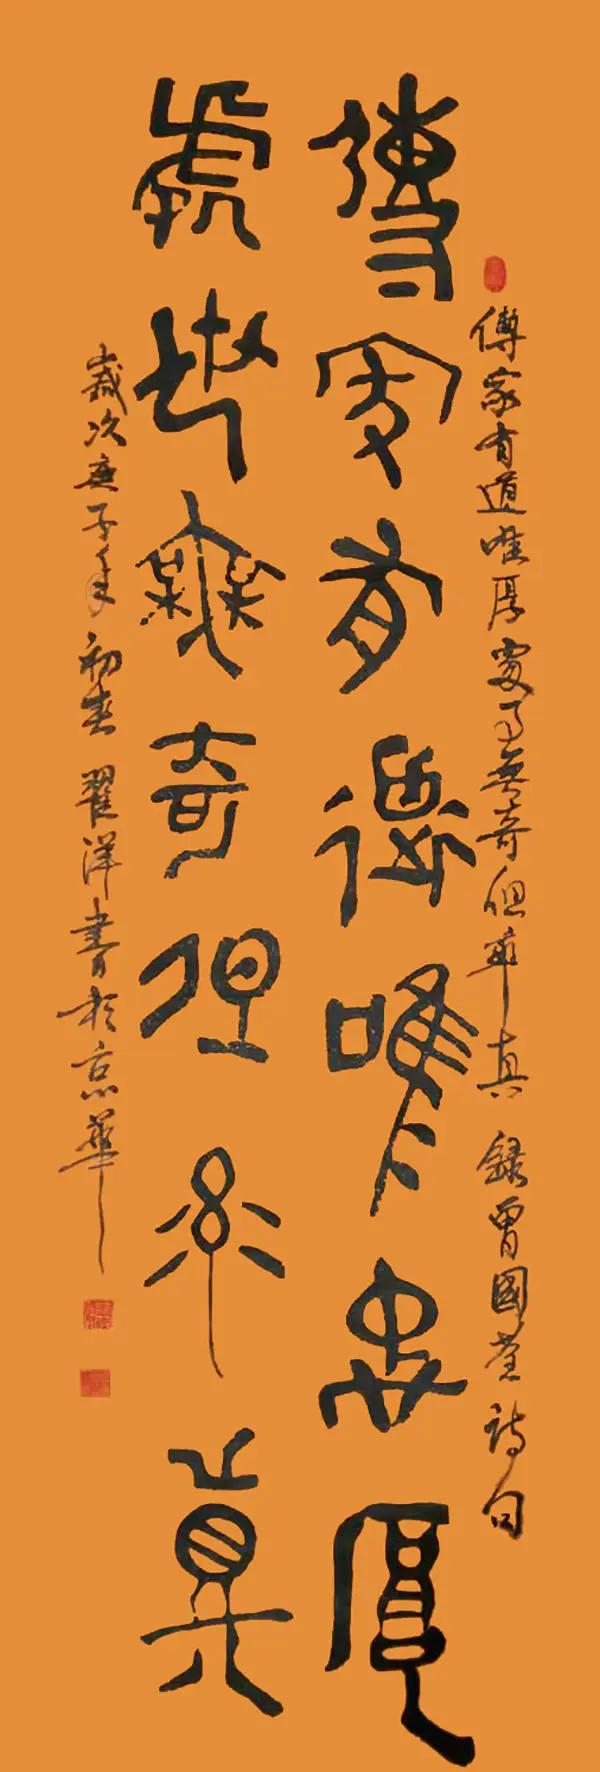 傳家有道唯厚處事無奇但率真 錄曾國荃詩句
傳家有道唯忠厚
處世無奇但率真
歲次庚子年初春 翟洋書於京華